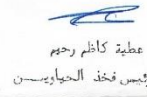 عطية كاظم رحيم
رئيس فخذ الحياويــــن